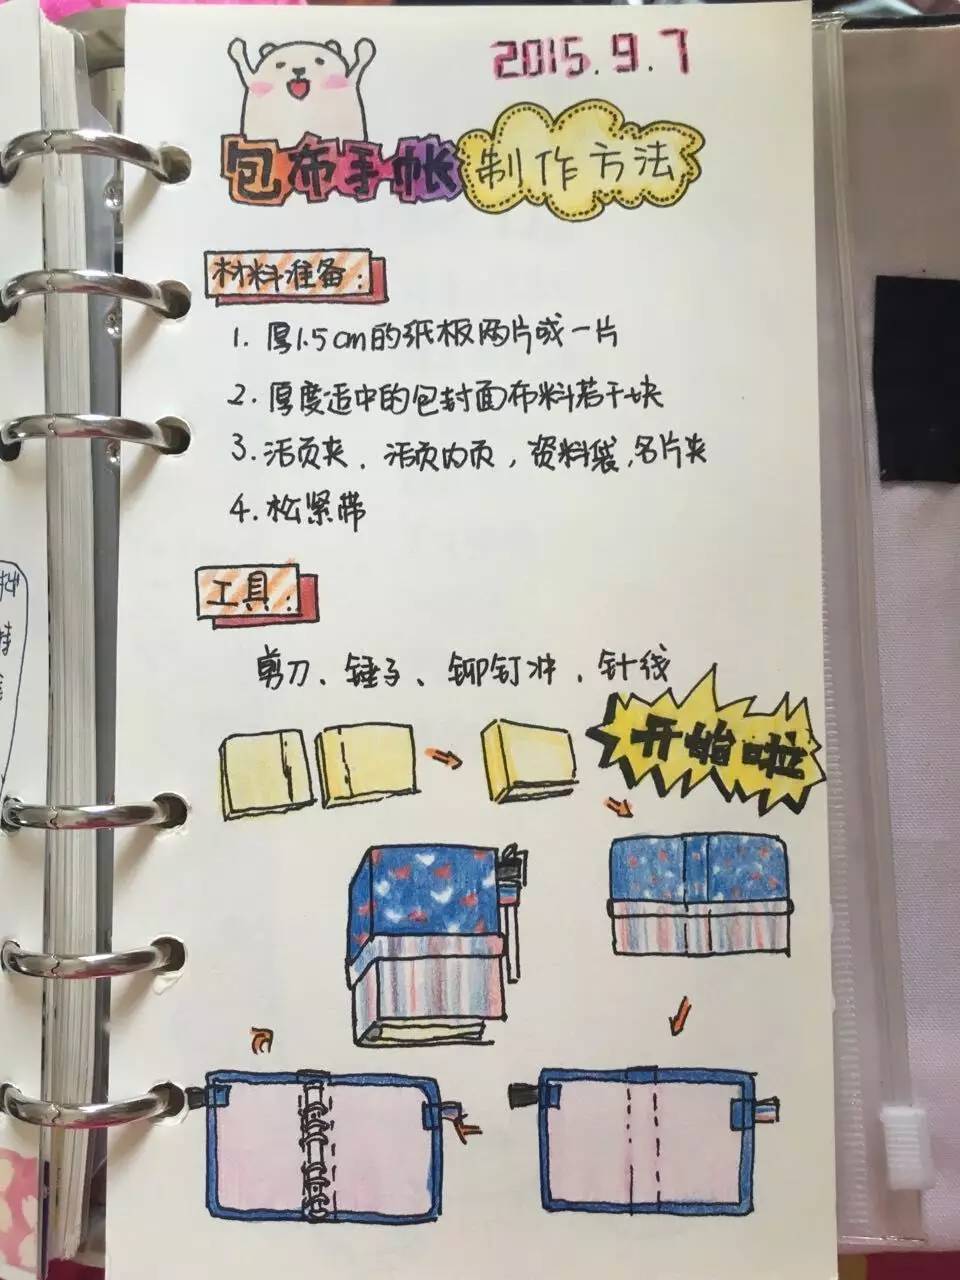 2015.9.7
包布手帐制作方法
材料准备：
1. 厚1.5cm的纸板两片或一片
2. 厚度适中的包封面布料若干块
3. 活页夹、活页内页，资料袋，名片夹
4. 松紧带
工具：
剪刀、锤子、铆钉冲、针线
开始啦